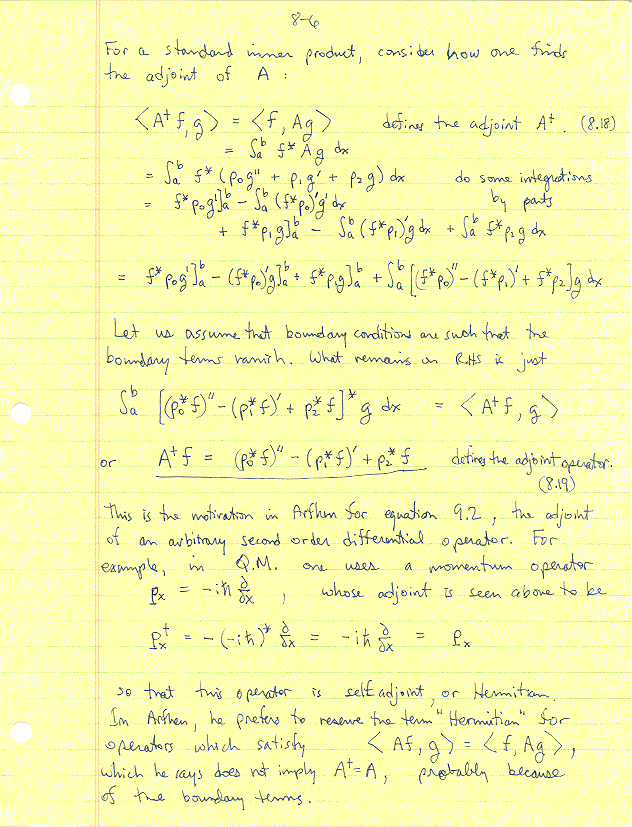 8-6
For a standard inner product, consider how one finds
the adjoint of A :
⟨A† f, g⟩ = ⟨f, Ag⟩ defines the adjoint A†. (8.18)
= ∫ₐᵇ f* A g dx
= ∫ₐᵇ f* (p₀g" + p₁g' + p₂g) dx do some integrations
= f* p₀g']ₐᵇ - ∫ₐᵇ (f*p₀)'g' dx by parts
+ f*p₁g]ₐᵇ - ∫ₐᵇ (f*p₁)'g dx + ∫ₐᵇ f*p₂g dx
= f*p₀g']ₐᵇ - (f*p₀)'g]ₐᵇ + f*p₁g]ₐᵇ + ∫ₐᵇ [(f*p₀)" - (f*p₁)' + f*p₂]g dx
Let us assume that boundary conditions are such that the
boundary terms vanish. What remains on RHS is just
∫ₐᵇ [(p₀*f)" - (p₁*f)' + p₂*f]* g dx = ⟨A†f, g⟩
or A†f = (p₀*f)" - (p₁*f)' + p₂*f defines the adjoint operator.
(8.19)
This is the motivation in Arfken for equation 9.2, the adjoint
of an arbitrary second order differential operator. For
example, in Q.M. one uses a momentum operator
pₓ = -iħ ∂/∂x , whose adjoint is seen above to be
pₓ† = -(-iħ)* ∂/∂x = -iħ ∂/∂x = pₓ
so that this operator is self adjoint, or Hermitian.
In Arfken, he prefers to reserve the term "Hermitian" for
operators which satisfy ⟨Af, g⟩ = ⟨f, Ag⟩,
which he says does not imply A†=A, probably because
of the boundary terms.